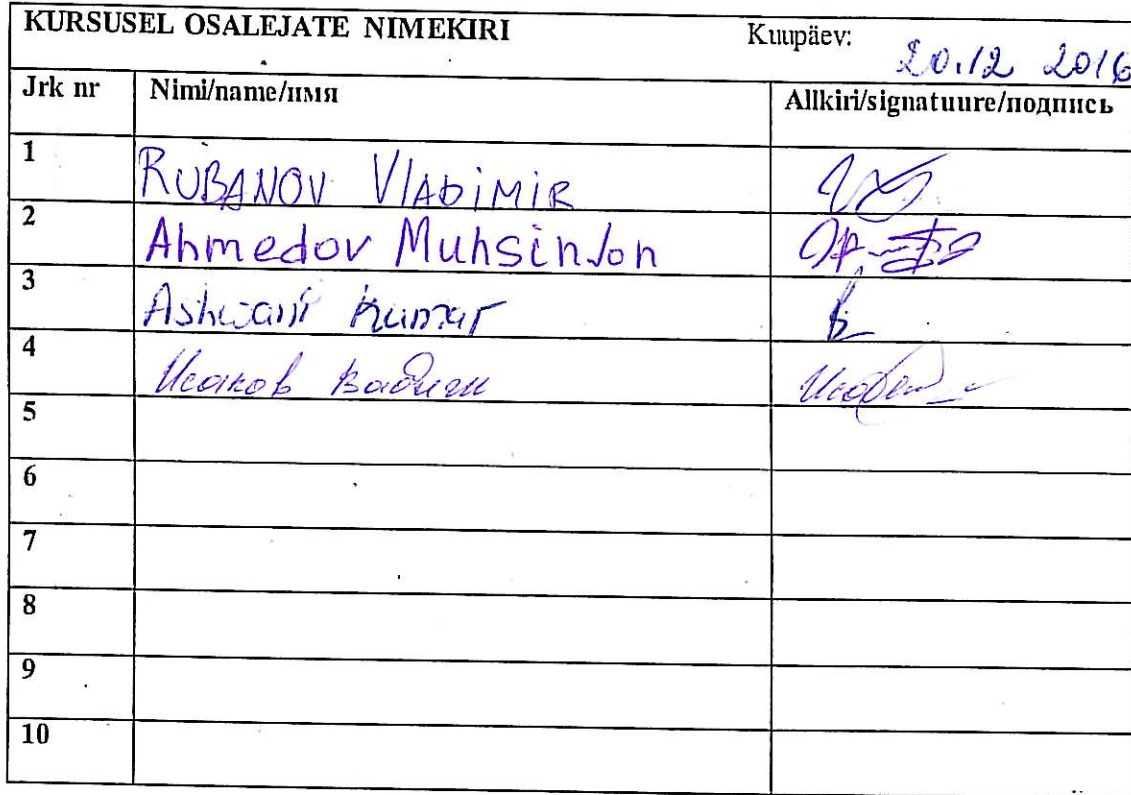 KURSUSEL OSALEJATE NIMEKIRI Kuupäev: 20.12 2016
Jrk nr Nimi/name/имя Allkiri/signatuure/подпись
1 RUBANOV VlADiMiR
2 Ahmedov MuhsinJon
3 Ashwani Kumar
4 Исаков Вадим
5
6
7
8
9
10